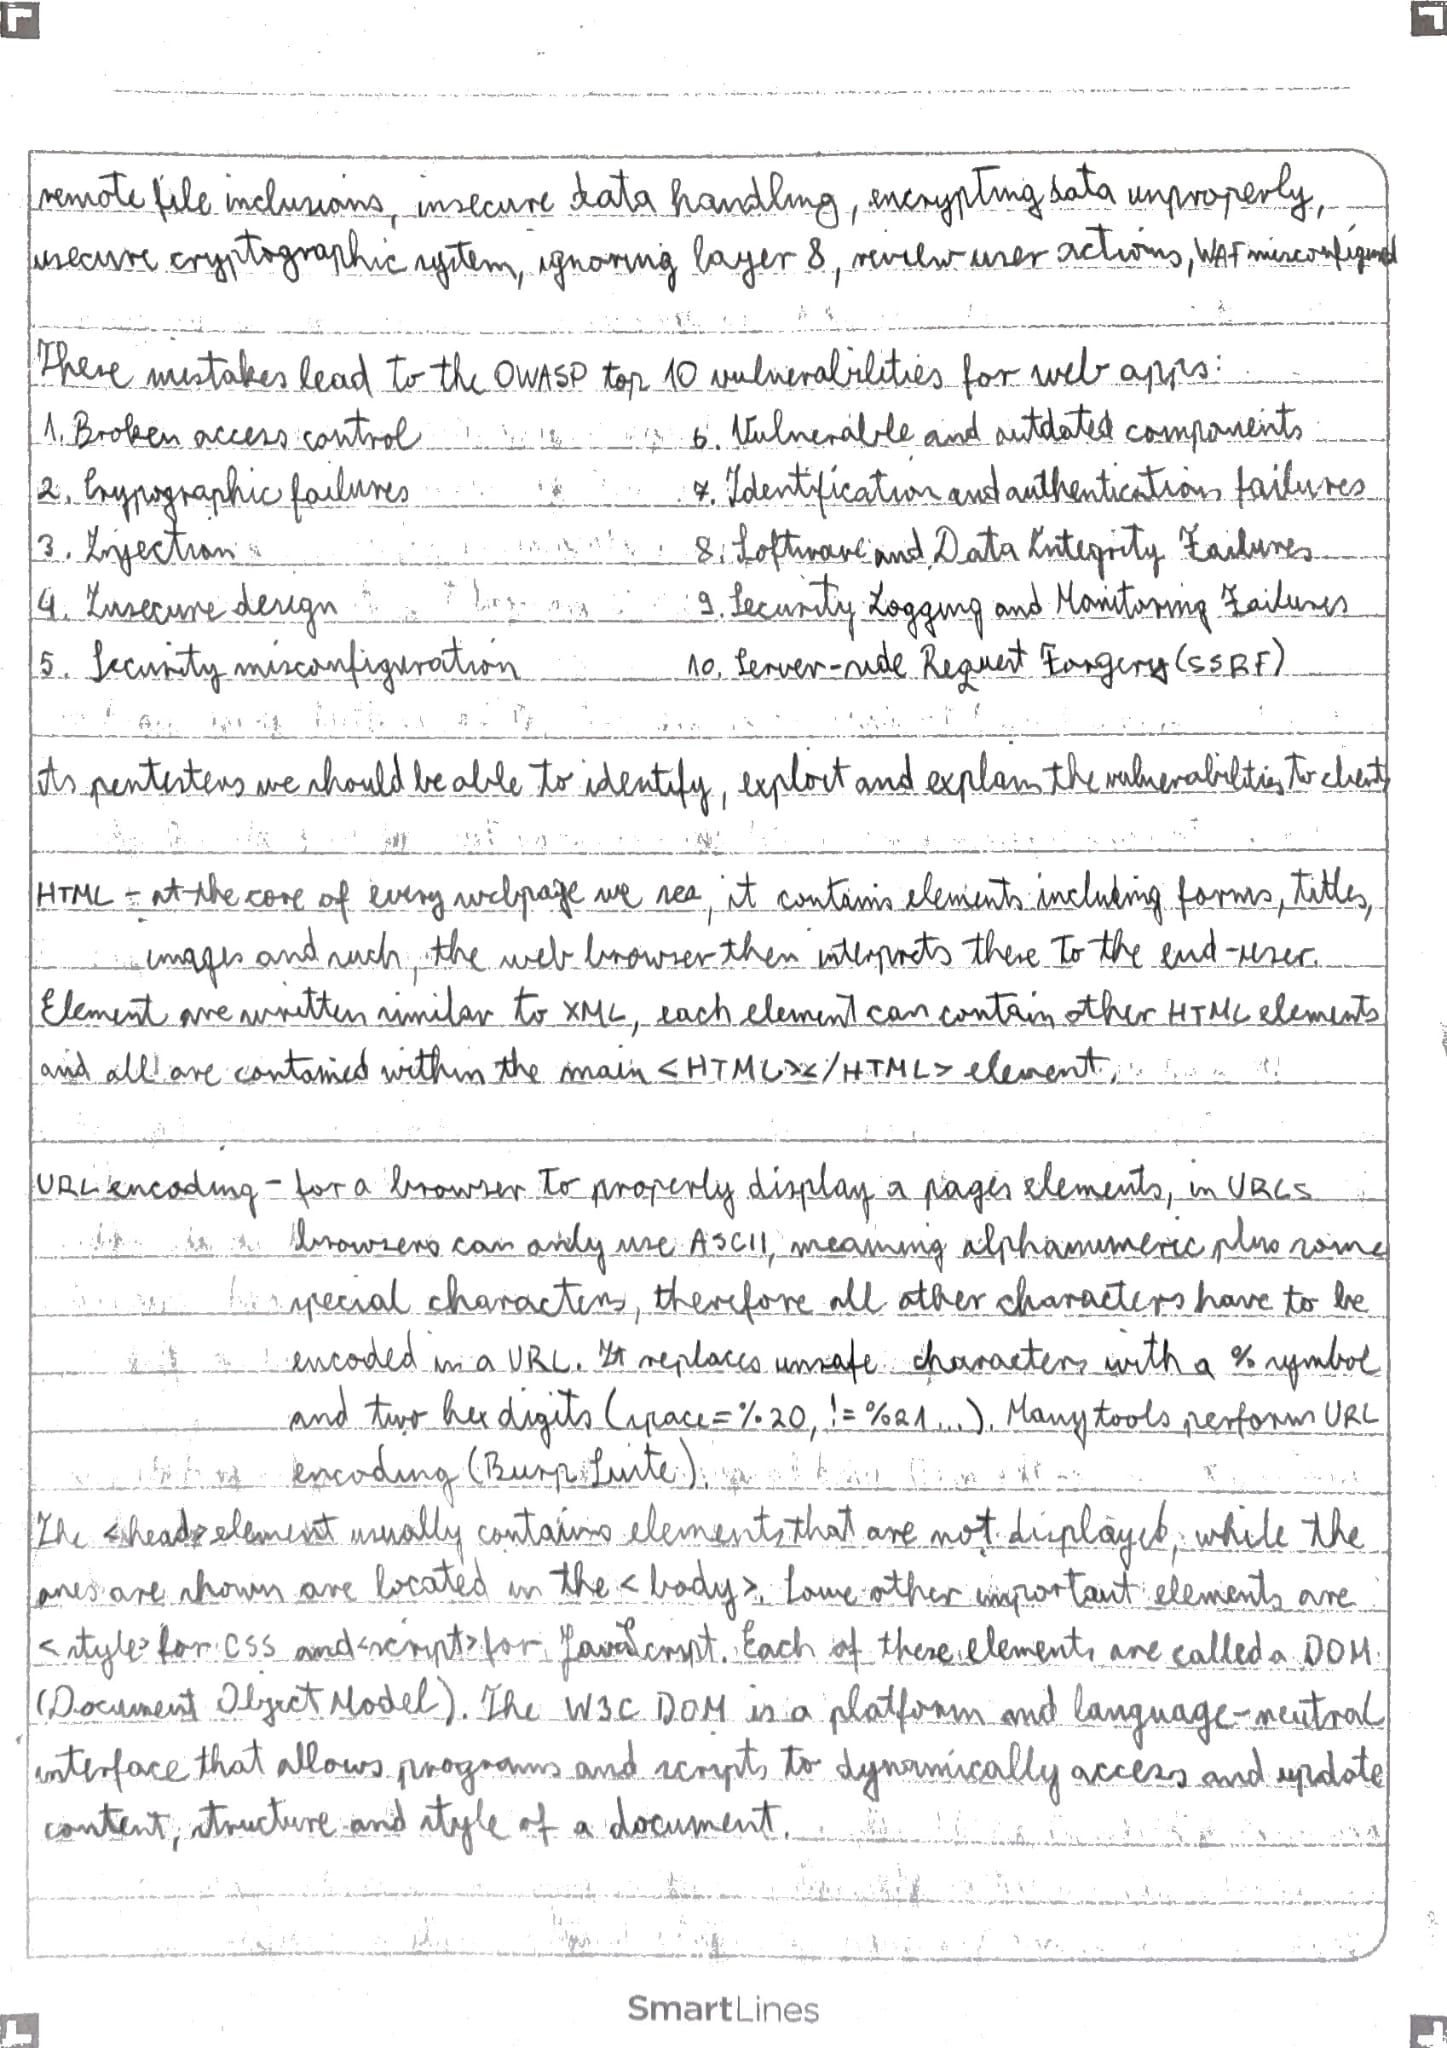 remote file inclusions, insecure data handling, encrypting data unproperly,
usecure cryptographic system, ignoring layer 8, review user actions, WAF misconfigured
These mistakes lead to the OWASP top 10 vulnerabilities for web apps:
1. Broken access control
2. Crypographic failures
3. Injection
4. Insecure design
5. Security misconfiguration
6. Vulnerable and outdated components
7. Identification and authentication failures
8. Software and Data Integrity Failures
9. Security Logging and Monitoring Failures
10. Server-side Request Forgery (SSRF)
As pentesters we should be able to identify, exploit and explain the vulnerabilities to clients
HTML - at the core of every webpage we see, it contains elements including forms, titles,
images and such, the web browser then interprets these to the end-user.
Element are written similar to XML, each element can contain other HTML elements
and all are contained within the main <HTML></HTML> element.
URL encoding - for a browser to properly display a pages elements, in URLs
browsers can only use ASCII, meaning alphanumeric plus some
special characters, therefore all other characters have to be
encoded in a URL. It replaces unsafe characters with a % symbol
and two hex digits (space=%20, !=%21...). Many tools perform URL
encoding (Burp Suite).
The <head> element usually contains elements that are not displayed, while the
ones are shown are located in the <body>. Some other important elements are
<style> for CSS and <script> for JavaScript. Each of these elements are called a DOM
(Document Object Model). The W3C DOM is a platform and language-neutral
interface that allows programs and scripts to dynamically access and update
content, structure and style of a document.
SmartLines